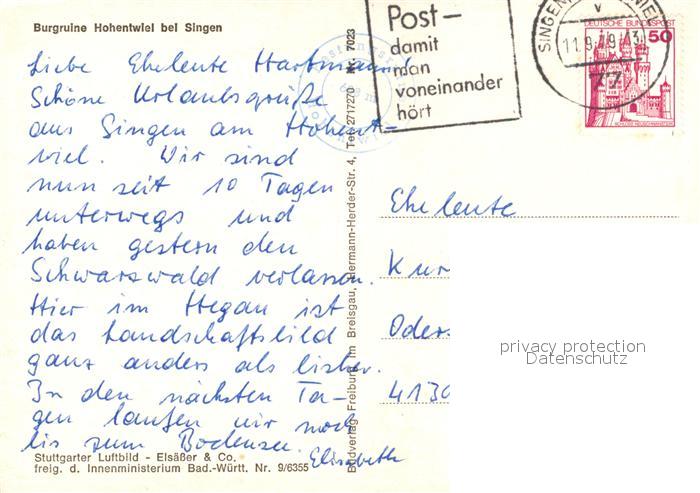 Burgruine Hohentwiel bei Singen
Liebe Eheleute Hartmann!
Schöne Urlaubsgrüße
aus Singen am Hohent-
wiel. Wir sind
nun seit 10 Tagen
unterwegs und
haben gestern den
Schwarzwald verlassen.
Hier im Hegau ist
das Landschaftsbild
ganz anders als bisher.
In den nächsten Ta-
gen laufen wir noch
bis zum Bodensee.
Elisabeth
Stuttgarter Luftbild - Elsäßer & Co.
freig. d. Innenministerium Bad.-Württ. Nr. 9/6355
Bildverlag Freiburg im Breisgau, Hermann-Herder-Str. 4, Tel. 2717270 Nr. 7023
Post-
damit
man
voneinander
hört
SINGEN
11.9.79
77
DEUTSCHE BUNDESPOST
50
Eheleute
Kur
Oder
4130
privacy protection
Datenschutz